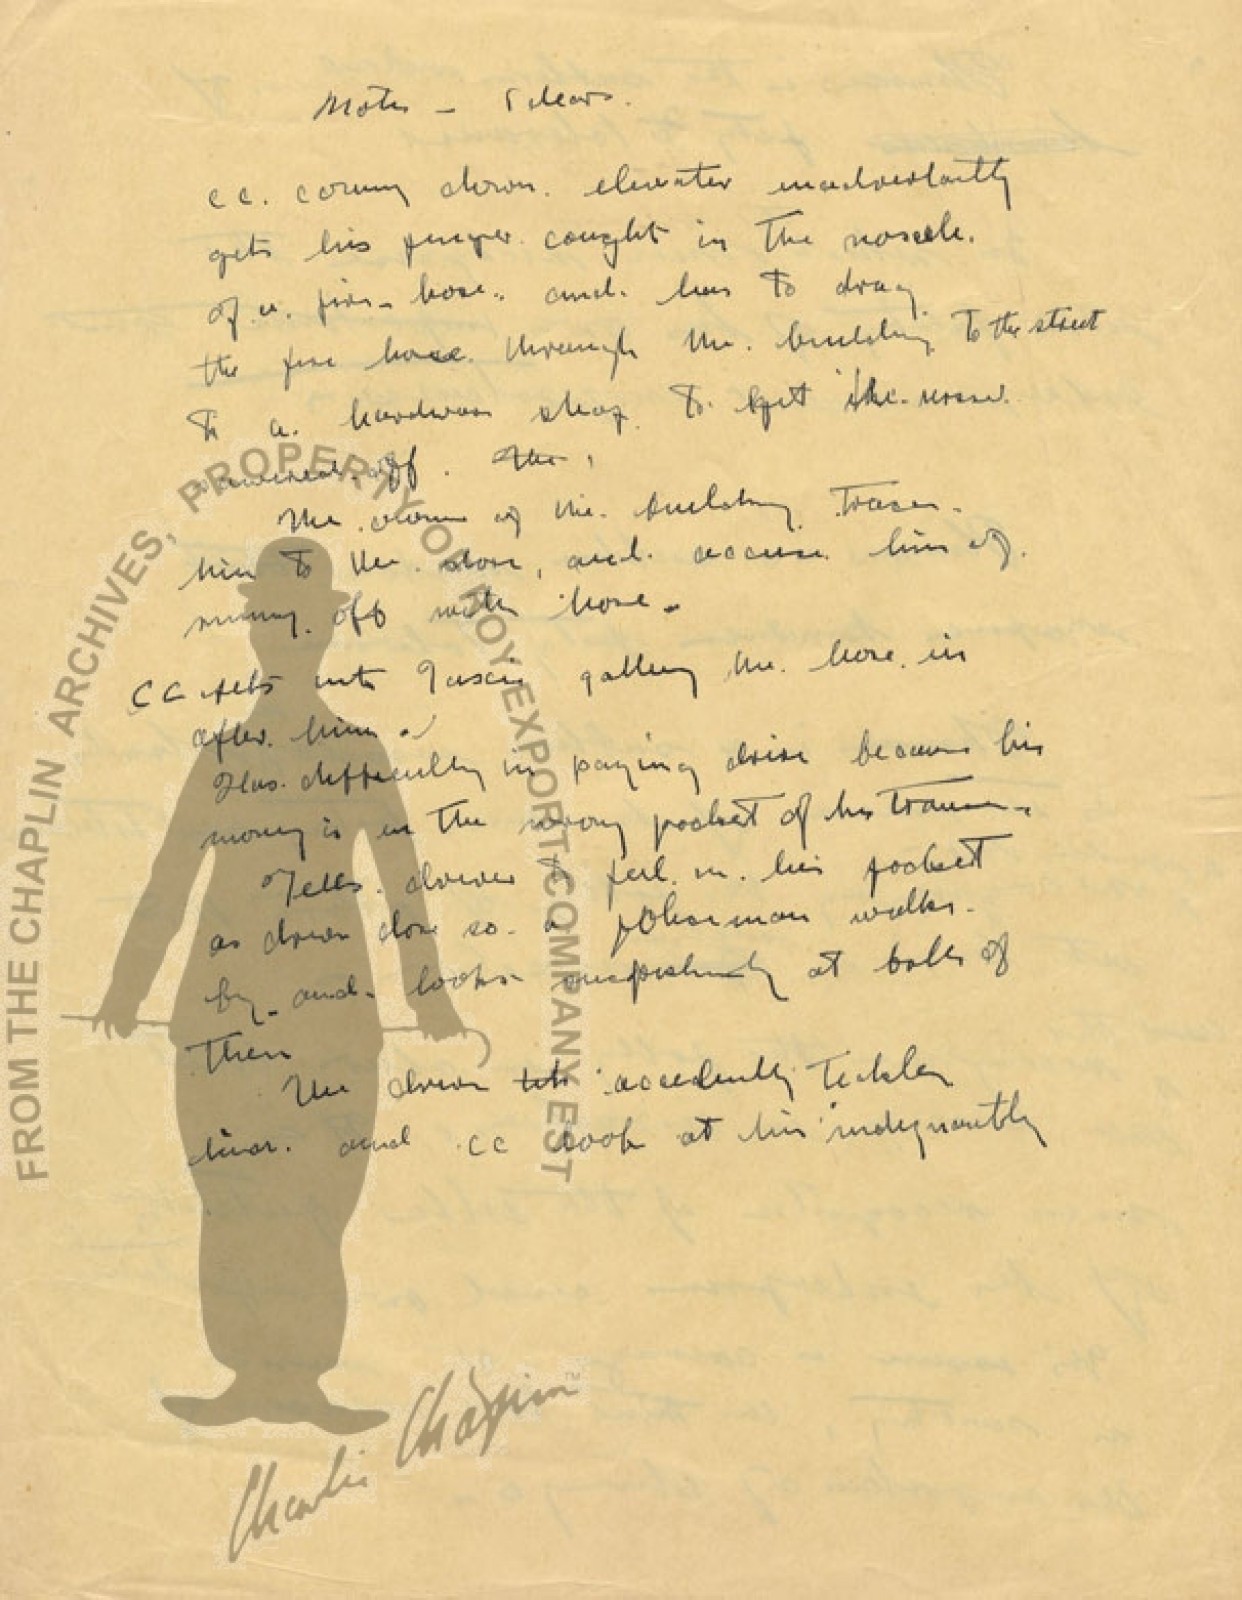 Notes – Ideas.
cc. coming down. elevator inadvertantly
gets his finger. caught in the nossele.
of a. fire-hose. and. has to drag
the fire hose. through the. building to the street
to a. hardware shop to get the nossel
off. the
The owner of the. building traces.
him to the. store, and. accuses him of.
running off with hose.
CC gets into taxi gathering the. hose. in
after. him.
Has. difficulty in paying driver because his
money is in the wrong pocket of his trouser.
Tells. driver to feel. in. his pocket
as driver does so. a policeman walks.
by. and. looks suspiciously at both of
them
The driver accidently tickles
him. and cc look at him indignantly
FROM THE CHAPLIN ARCHIVES, PROPERTY OF ROY EXPORT COMPANY EST
Charlie Chaplin™